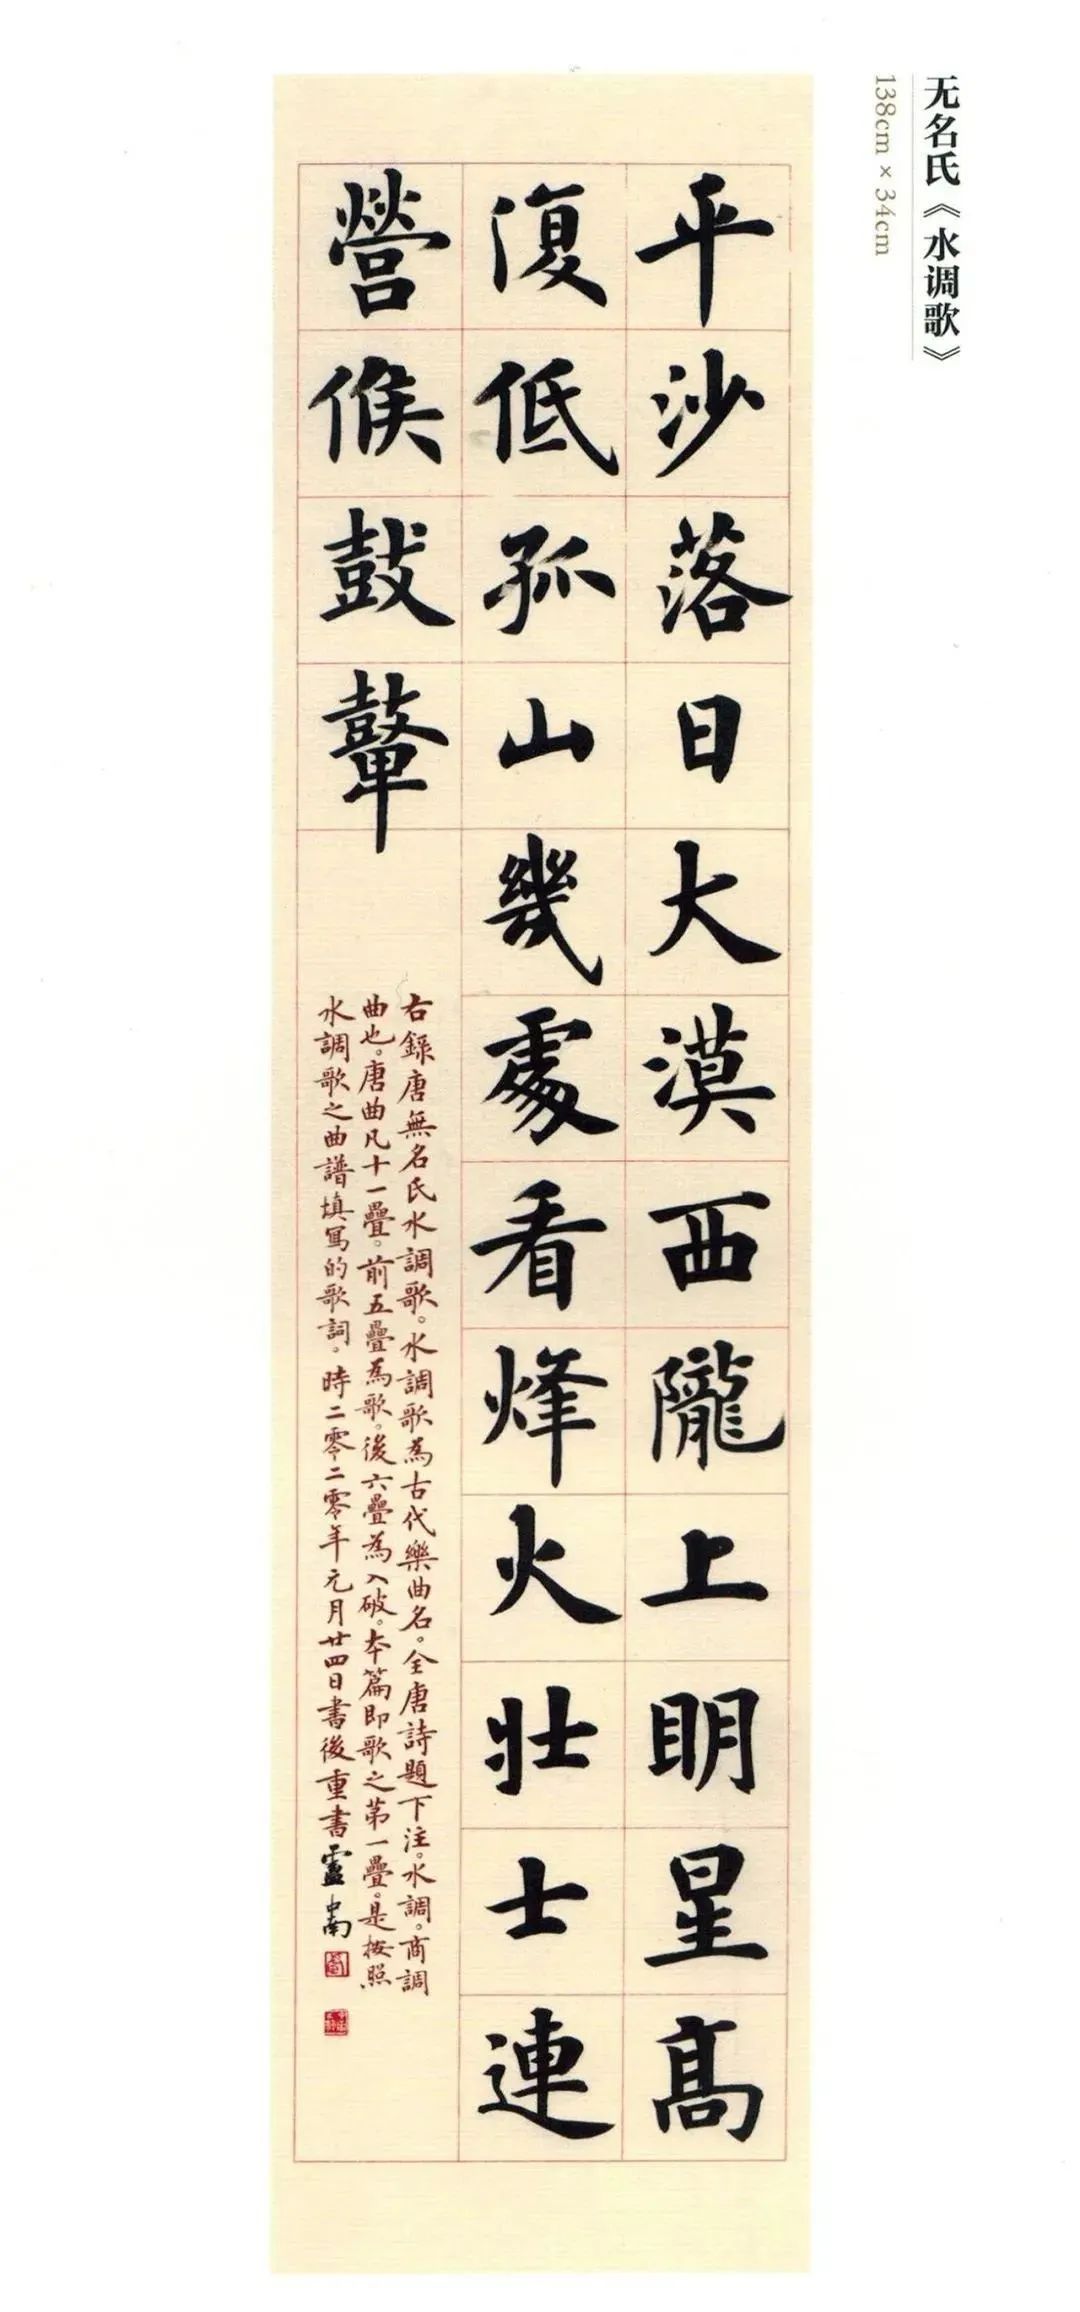 无名氏《水调歌》
138cm×34cm
平沙落日大漠西隴上明星髙
復低孤山幾處看烽火壯士連
營候鼓鼙
右錄唐無名氏水調歌。水調歌為古代樂曲名。全唐詩題下注。水調。商調
曲也。唐曲凡十一疊。前五疊為歌。後六疊為入破。本篇即歌之第一疊。是按照
水調歌之曲譜填寫的歌詞。時二零二零年元月廿四日書後重書盧中南